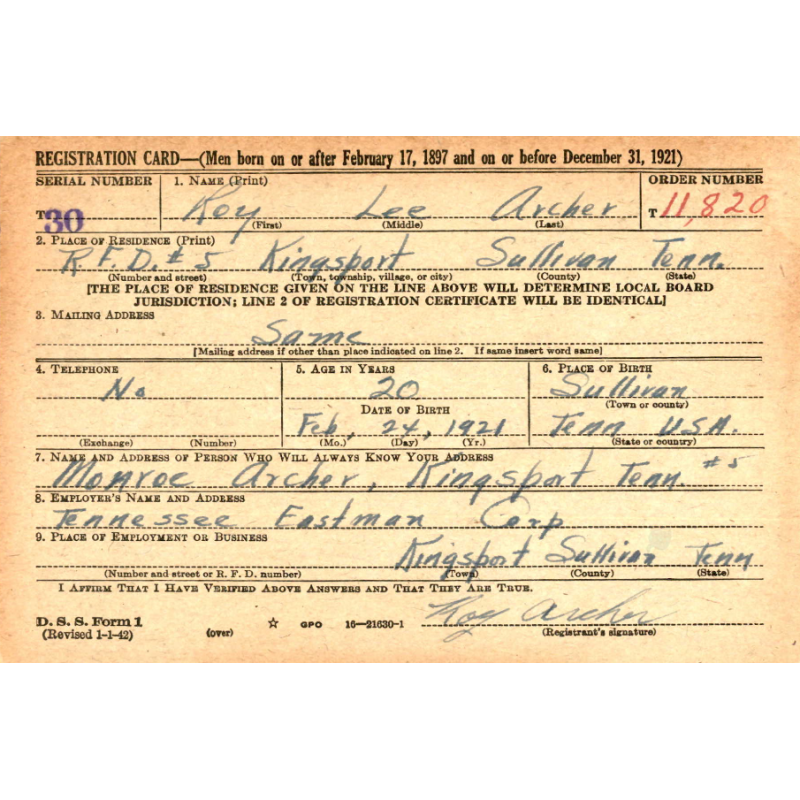 REGISTRATION CARD—(Men born on or after February 17, 1897 and on or before December 31, 1921)
SERIAL NUMBER 1. NAME (Print) ORDER NUMBER
T 30 Roy Lee Archer T 11,820
(First) (Middle) (Last)
2. PLACE OF RESIDENCE (Print)
R.F.D. #5 Kingsport Sullivan Tenn.
(Number and street) (Town, township, village, or city) (County) (State)
[THE PLACE OF RESIDENCE GIVEN ON THE LINE ABOVE WILL DETERMINE LOCAL BOARD
JURISDICTION; LINE 2 OF REGISTRATION CERTIFICATE WILL BE IDENTICAL]
3. MAILING ADDRESS
Same
[Mailing address if other than place indicated on line 2. If same insert word same]
4. TELEPHONE 5. AGE IN YEARS 6. PLACE OF BIRTH
No 20 Sullivan
(Town or county)
DATE OF BIRTH
Feb, 24, 1921 Tenn U.S.A.
(Exchange) (Number) (Mo.) (Day) (Yr.) (State or country)
7. NAME AND ADDRESS OF PERSON WHO WILL ALWAYS KNOW YOUR ADDRESS
Monroe Archer, Kingsport Tenn. #5
8. EMPLOYER'S NAME AND ADDRESS
Tennessee Eastman Corp
9. PLACE OF EMPLOYMENT OR BUSINESS
Kingsport Sullivan Tenn
(Number and street or R. F. D. number) (Town) (County) (State)
I AFFIRM THAT I HAVE VERIFIED ABOVE ANSWERS AND THAT THEY ARE TRUE.
Roy Archer
D. S. S. Form 1
(Revised 1-1-42) (over) ☆ GPO 16—21630-1 (Registrant's signature)